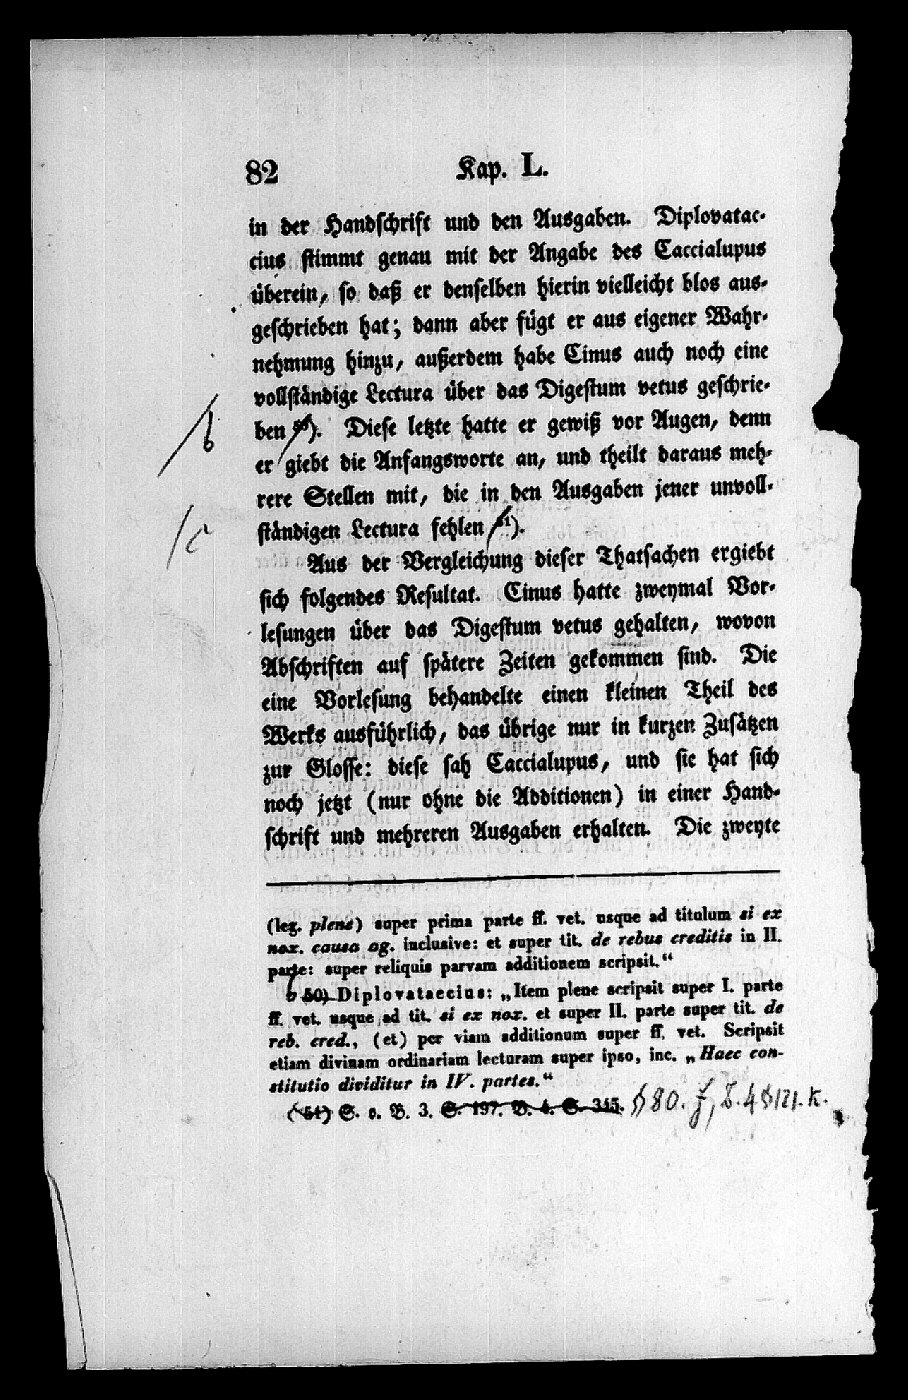 82 Kap. L.
in der Handschrift und den Ausgaben. Diplovatac-
cius stimmt genau mit der Angabe des Caccialupus
überein, so daß er denselben hierin vielleicht blos aus-
geschrieben hat; dann aber fügt er aus eigener Wahr-
nehmung hinzu, außerdem habe Cinus auch noch eine
vollständige Lectura über das Digestum vetus geschrie-
b ben 50). Diese letzte hatte er gewiß vor Augen, denn
er giebt die Anfangsworte an, und theilt daraus meh-
rere Stellen mit, die in den Ausgaben jener unvoll-
c ständigen Lectura fehlen 51).
Aus der Vergleichung dieser Thatsachen ergiebt
sich folgendes Resultat. Cinus hatte zweymal Vor-
lesungen über das Digestum vetus gehalten, wovon
Abschriften auf spätere Zeiten gekommen sind. Die
eine Vorlesung behandelte einen kleinen Theil des
Werks ausführlich, das übrige nur in kurzen Zusätzen
zur Glosse: diese sah Caccialupus, und sie hat sich
noch jetzt (nur ohne die Additionen) in einer Hand-
schrift und mehreren Ausgaben erhalten. Die zweyte
(leg. plene) super prima parte ff. vet. usque ad titulum si ex
nox. causa ag. inclusive: et super tit. de rebus creditis in II.
parte: super reliquis parvam additionem scripsit.“
b 50) Diplovataccius: „Item plene scripsit super I. parte
ff. vet. usque ad tit. si ex nox. et super II. parte super tit. de
reb. cred., (et) per viam additionum super ff. vet. Scripsit
etiam divinam ordinariam lecturam super ipso, inc. „Haec con-
stitutio dividitur in IV. partes.“
51) S. o. B. 3. S. 197. B. 4. S. 345. § 80. f, B. 4 § 121. k.